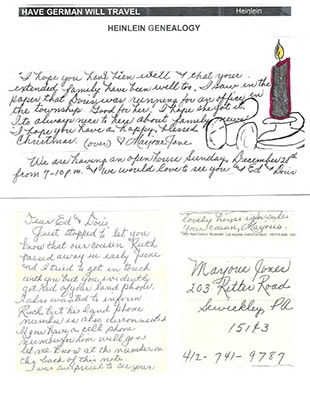 HAVE GERMAN WILL TRAVEL
Heinlein
HEINLEIN GENEALOGY
"I hope you have been well & that your
extended family have been well too. I saw in the
paper that Doris was running for an office in
the township. Good for her! I hope she got it.
It's always nice to hear about family news!
I hope you have a happy, blessed
Christmas. (over) Mayoue Jane
We are having an open house Sunday, December 28th
from 7-10 p.m. & we would love to see you Ed & Doris
Dear Ed & Doris,
Just stopped to let you
know that our cousin Ruth
passed away in early June
and I tried to get in touch
with you but you evidently
got rid of your land phone.
I also wanted to inform
but his land phone
number is also disconnected
If you have a cell phone
number you will
let me know at the number on
the back of this note.
I was surprised to see your
Lovely
your cousin, Mayoue
Mayoue Jones
203 Ritter Road
Sewickley, PA
15143
412-741-9787